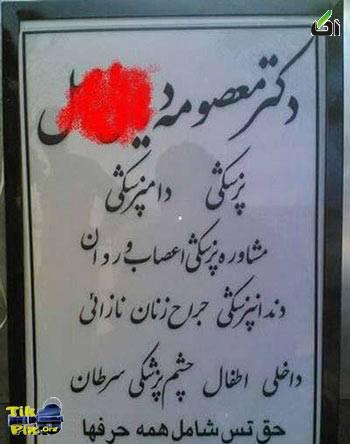 دکتر معصومه
پزشکی دامپزشکی
مشاوره پزشکی اعصاب و روان
دندانپزشکی جراح زنان نازائی
داخلی اطفال چشم پزشکی سرطان
حق تس شامل همه حرفها
Tik
Pik.org